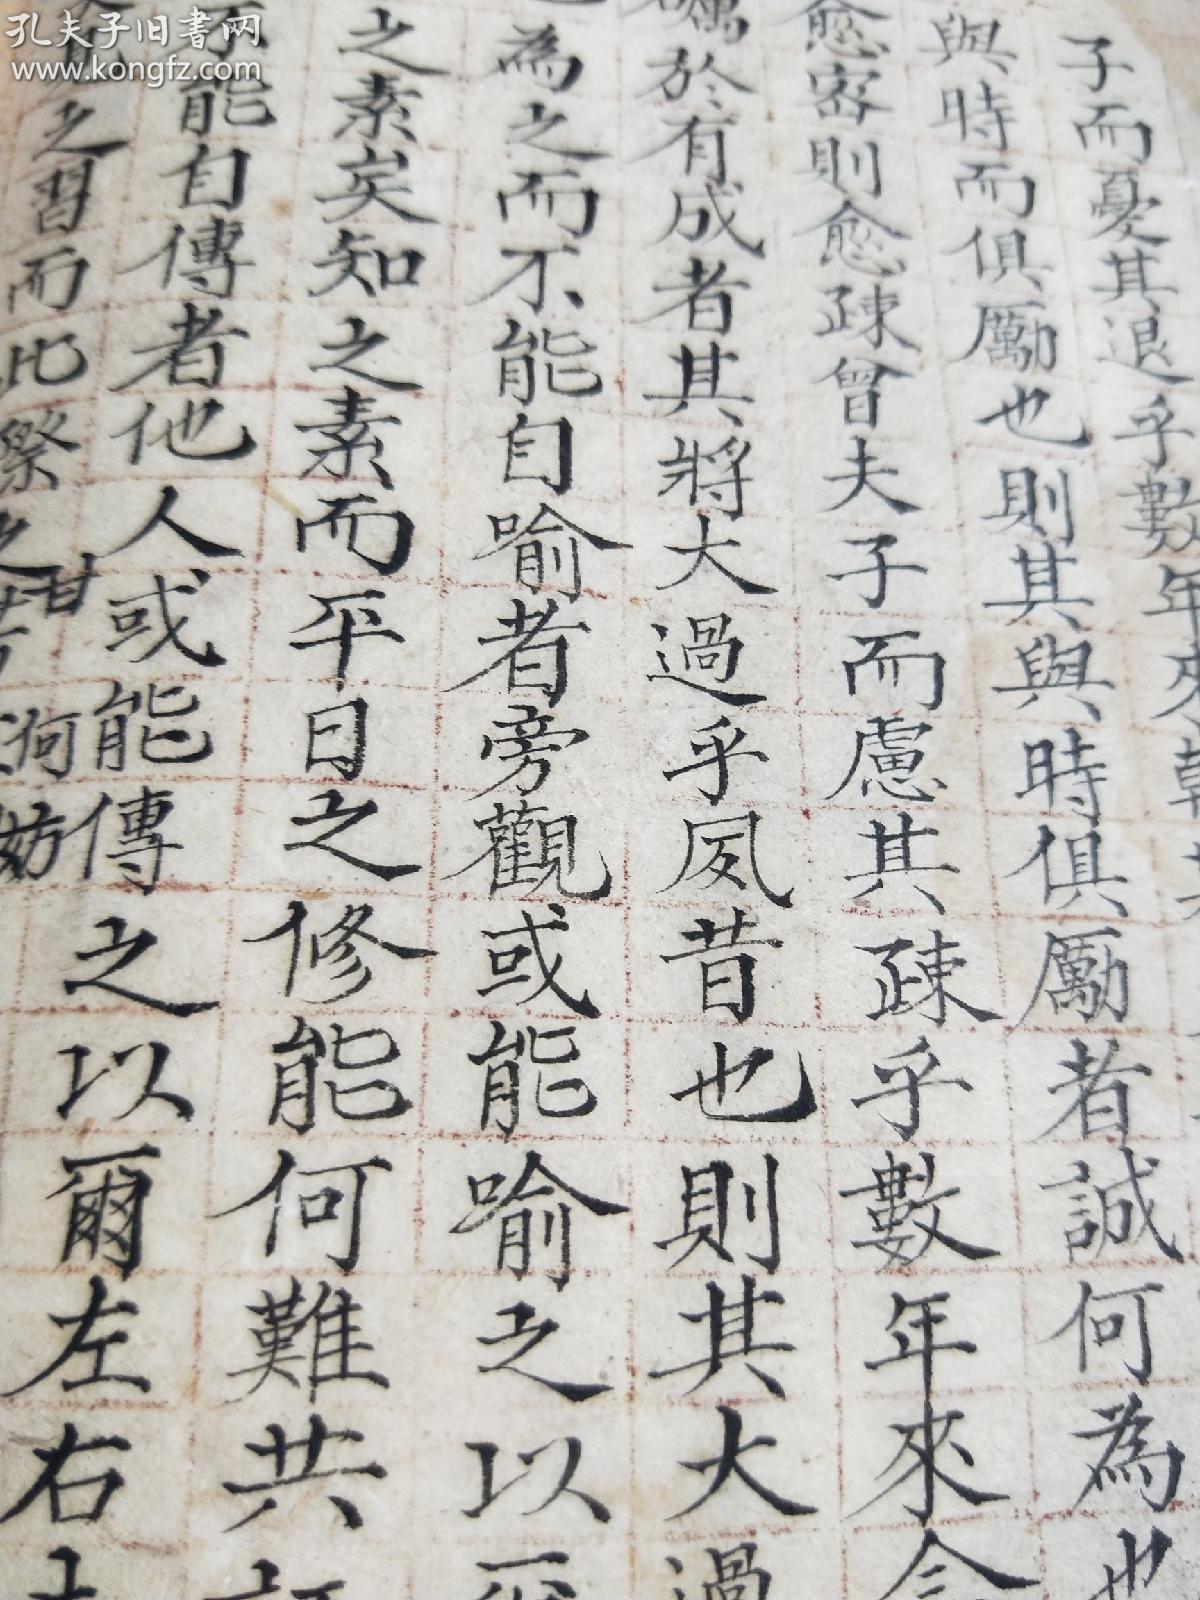 孔夫子旧书网
www.kongfz.com
子而憂其退乎數年來
與時而俱勵也則其與時俱勵者誠何為也
愈密則愈疎曾夫子而慮其疎乎數年來今
於有成者其將大過乎夙昔也則其大過
為之而不能自喻者旁觀或能喻之以
之素矣知之素而平日之修能何難共
不能自傳者他人或能傳之以爾左右
之習而比
甘
何妨